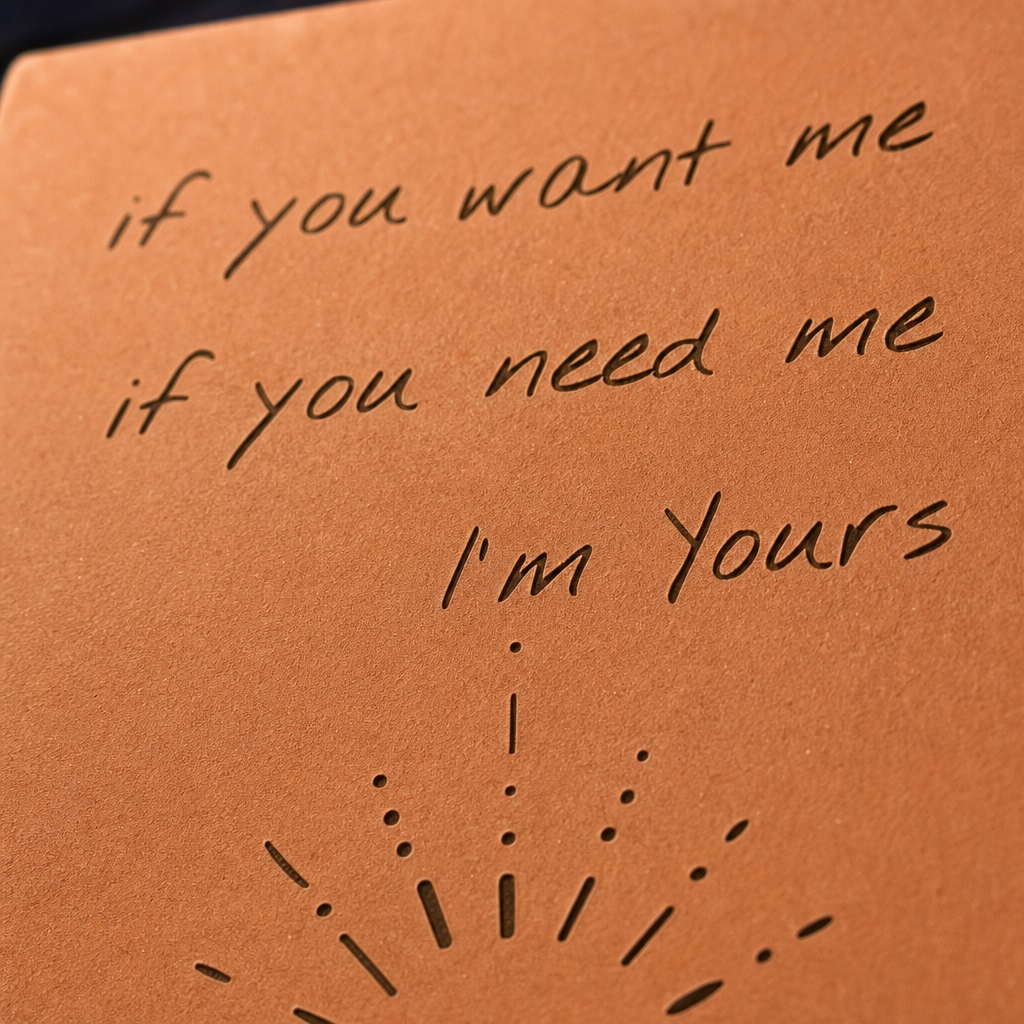 if you want me
if you need me
I'm Yours